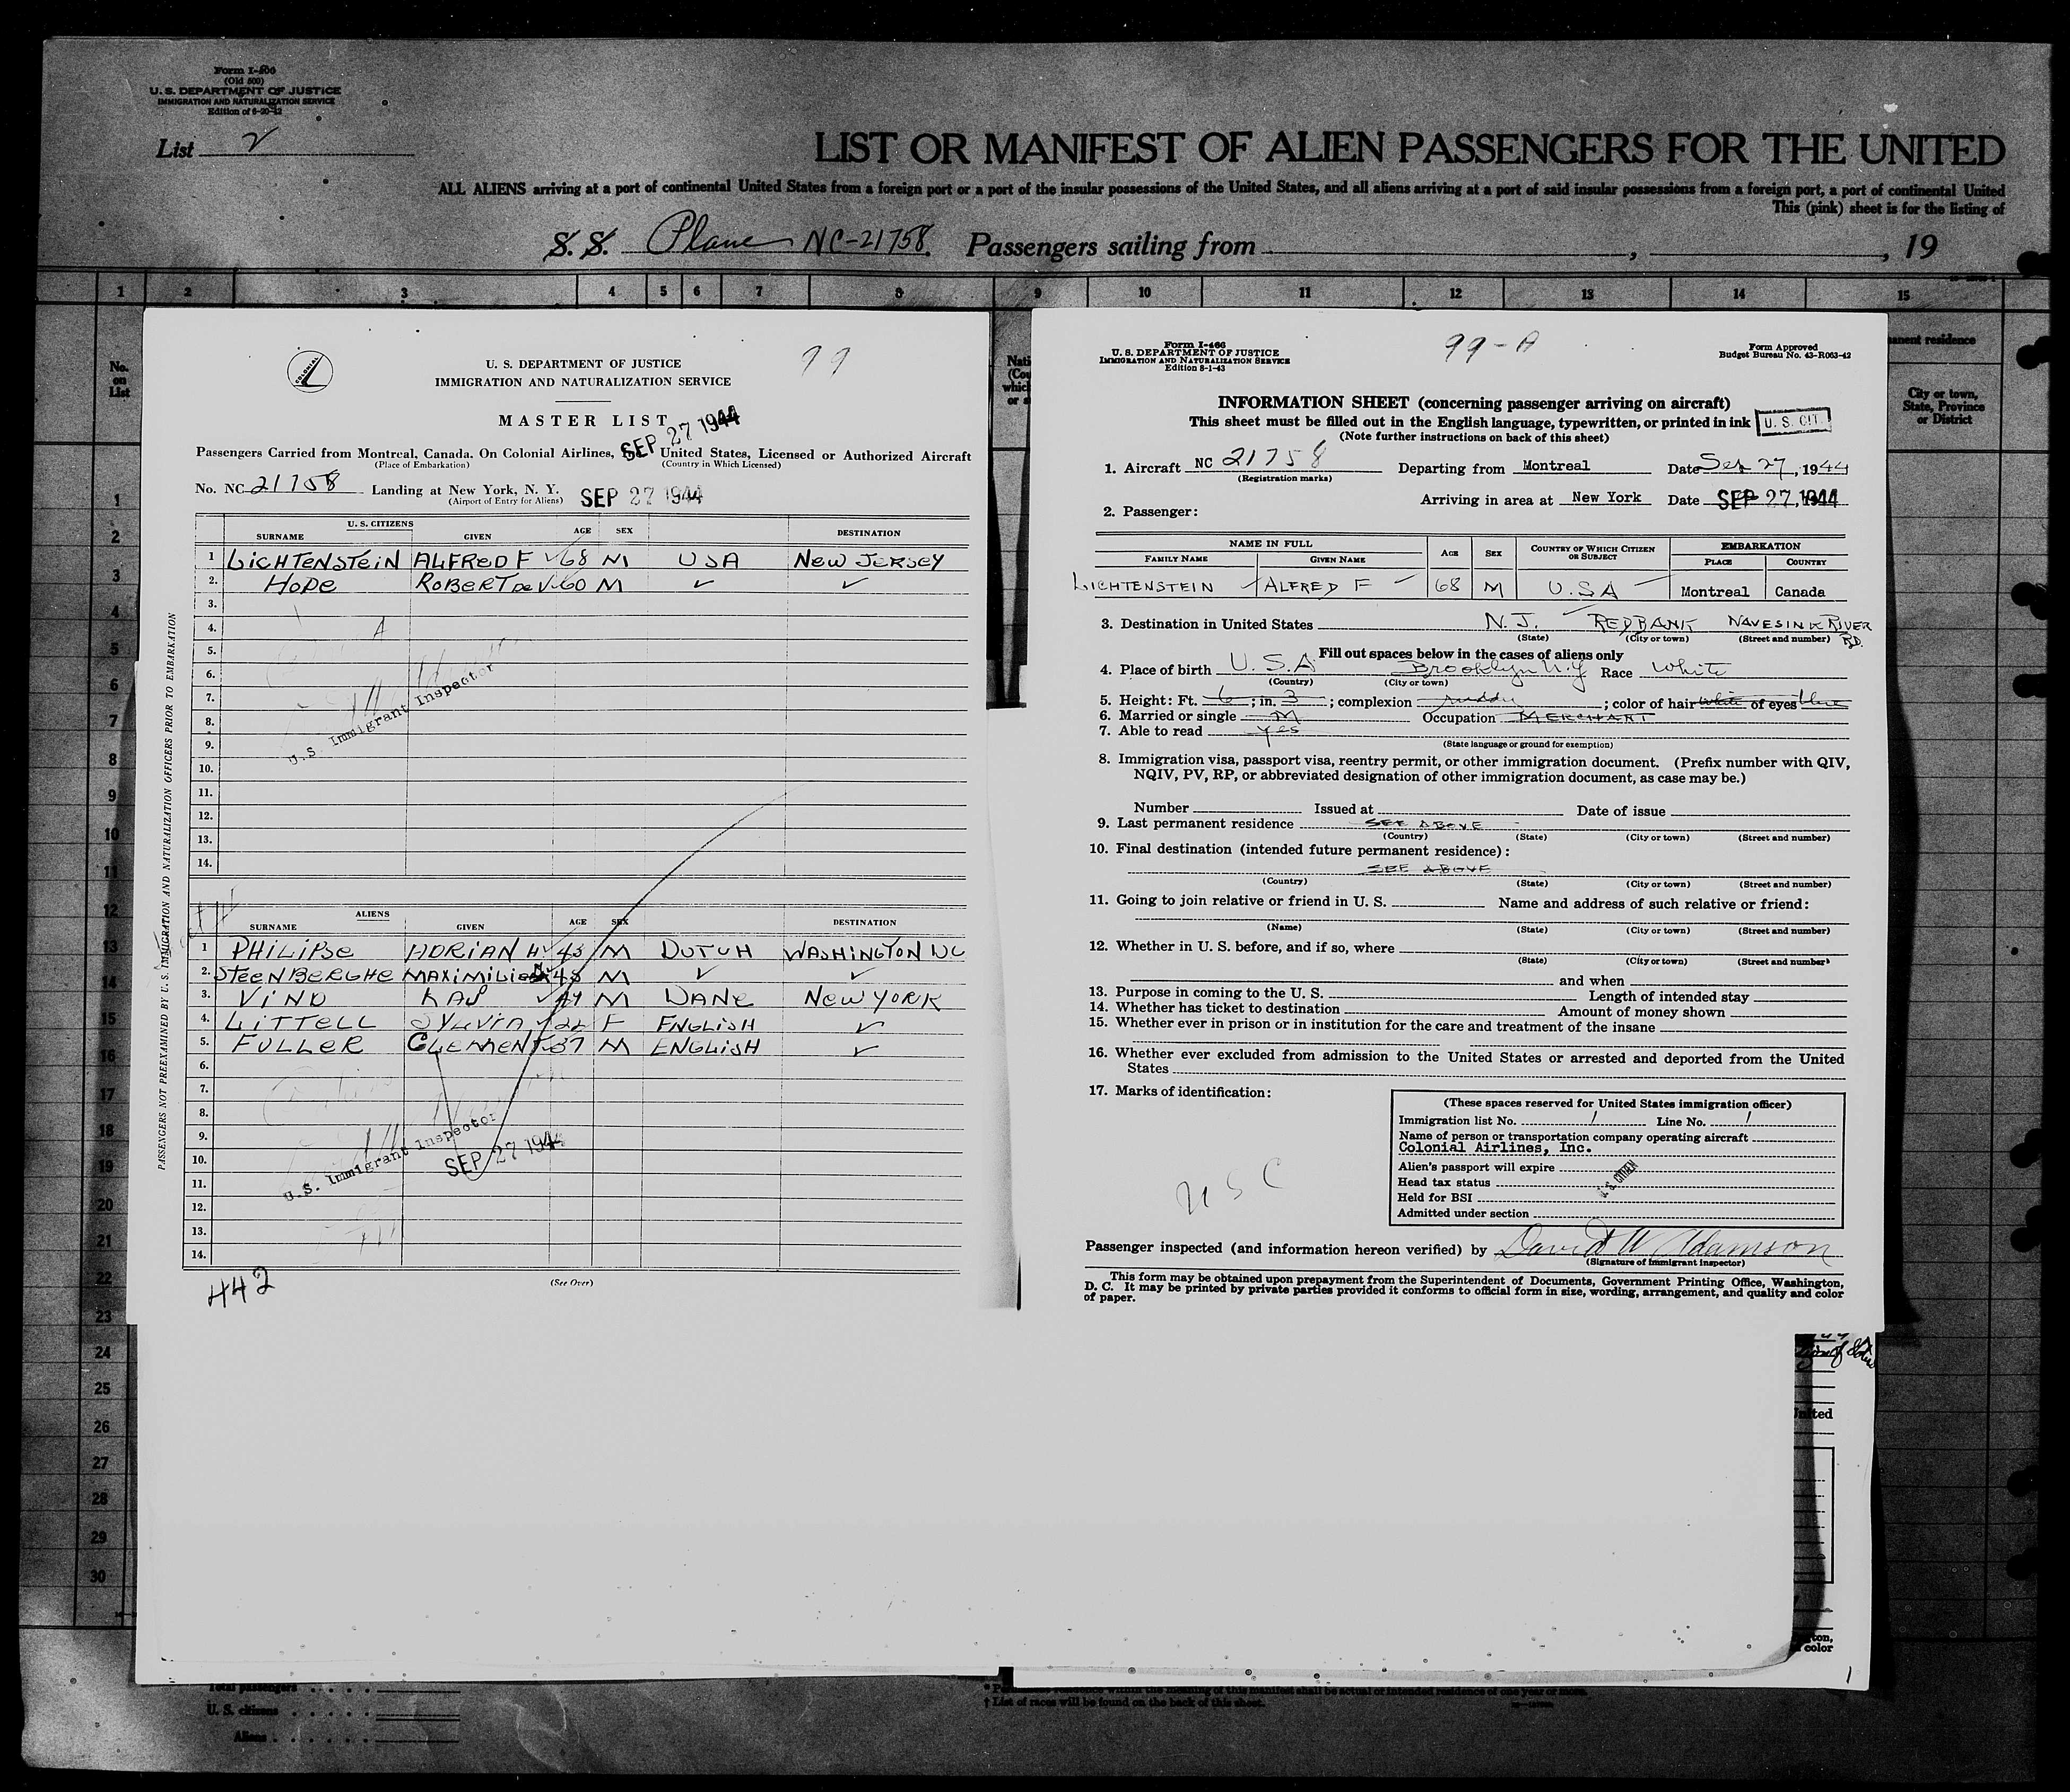 Form I-466
(Old 500)
U. S. DEPARTMENT OF JUSTICE
IMMIGRATION AND NATURALIZATION SERVICE
List 2
LIST OR MANIFEST OF ALIEN PASSENGERS FOR THE UNITED
ALL ALIENS arriving at a port of continental United States from a foreign port or a port of the insular possessions of the United States, and all aliens arriving at a port of said insular possessions from a foreign port, a port of continental United
This (pink) sheet is for the listing of
S. S. Plane NC-21758. Passengers sailing from , , 19
1 2 3 4 5 6 7 8 9 10 11 12 13 14 15
No. on List
City or town, State, Province or District
COLONIAL
99
U. S. DEPARTMENT OF JUSTICE
IMMIGRATION AND NATURALIZATION SERVICE
MASTER LIST
SEP 27 1944
Passengers Carried from Montreal, Canada. On Colonial Airlines, United States, Licensed or Authorized Aircraft
(Place of Embarkation) (Country in Which Licensed)
No. NC 21758 Landing at New York, N. Y. SEP 27 1944
(Airport of Entry for Aliens)
U. S. CITIZENS
SURNAME GIVEN AGE SEX DESTINATION
1 LICHTENSTEIN ALFRED F ✓ 68 M USA NEW JERSEY
2. HOPE ROBERT DE V. 60 M ✓ ✓
3.
4.
5.
6.
7.
8.
9.
10.
11.
12.
13.
14.
U.S. Immigrant Inspector
PASSENGERS NOT PREEXAMINED BY U. S. IMMIGRATION AND NATURALIZATION OFFICERS PRIOR TO EMBARKATION
ALIENS
SURNAME GIVEN AGE SEX DESTINATION
1 PHILIPSE ADRIAN H ✓ 43 M DUTCH WASHINGTON DC
2. STEENBERGHE MAXIMILIEN 45 M ✓ ✓
3. VIND KAJ M DANE NEW YORK
4. LITTELL 22 F ENGLISH ✓
5. FULLER CLEMENT 37 M ENGLISH ✓
6.
7.
8.
9.
10.
11.
12.
13.
14.
U.S. Immigrant Inspector
SEP 27 1944
442
(See Over)
Form I-466
U. S. DEPARTMENT OF JUSTICE
IMMIGRATION AND NATURALIZATION SERVICE
Edition 8-1-43
99-A
Form Approved
Budget Bureau No. 43-R063-42
INFORMATION SHEET (concerning passenger arriving on aircraft)
This sheet must be filled out in the English language, typewritten, or printed in ink
U. S. CIT.
(Note further instructions on back of this sheet)
1. Aircraft NC 21758 Departing from Montreal Date Sep 27, 1944
(Registration marks)
Arriving in area at New York Date SEP 27, 1944
2. Passenger:
NAME IN FULL AGE SEX COUNTRY OF WHICH CITIZEN OR SUBJECT EMBARKATION
FAMILY NAME GIVEN NAME PLACE COUNTRY
LICHTENSTEIN ALFRED F 68 M U.S.A Montreal Canada
3. Destination in United States N. J. REDBANK NAVESINK RIVER RD.
(State) (City or town) (Street and number)
Fill out spaces below in the cases of aliens only
4. Place of birth U.S.A Brooklyn N.Y Race White
(Country) (City or town)
5. Height: Ft. 6 ; in. 3 ; complexion ruddy ; color of hair white of eyes blue
6. Married or single M Occupation MERCHANT
7. Able to read yes
(State language or ground for exemption)
8. Immigration visa, passport visa, reentry permit, or other immigration document. (Prefix number with QIV, NQIV, PV, RP, or abbreviated designation of other immigration document, as case may be.)
Number Issued at Date of issue
9. Last permanent residence SEE ABOVE
(Country) (State) (City or town) (Street and number)
10. Final destination (intended future permanent residence):
SEE ABOVE
(Country) (State) (City or town) (Street and number)
11. Going to join relative or friend in U. S. Name and address of such relative or friend:
(Name) (State) (City or town) (Street and number)
12. Whether in U. S. before, and if so, where
(State) (City or town) (Street and number)
and when
13. Purpose in coming to the U. S. Length of intended stay
14. Whether has ticket to destination Amount of money shown
15. Whether ever in prison or in institution for the care and treatment of the insane
16. Whether ever excluded from admission to the United States or arrested and deported from the United
States
17. Marks of identification:
(These spaces reserved for United States immigration officer)
Immigration list No. 1 Line No. 1
Name of person or transportation company operating aircraft
Colonial Airlines, Inc.
Alien's passport will expire
Head tax status
U.S. CITIZEN
Held for BSI
Admitted under section
U S C
Passenger inspected (and information hereon verified) by David W Adamson
(Signature of immigrant inspector)
This form may be obtained upon prepayment from the Superintendent of Documents, Government Printing Office, Washington,
D. C. It may be printed by private parties provided it conforms to official form in size, wording, arrangement, and quality and color
of paper.
1
2
3
4
5
6
7
8
9
10
11
12
13
14
15
16
17
18
19
20
21
22
23
24
25
26
27
28
29
30
color
1
Total passengers
U. S. citizens
Aliens
† List of races will be found on the back of this sheet.